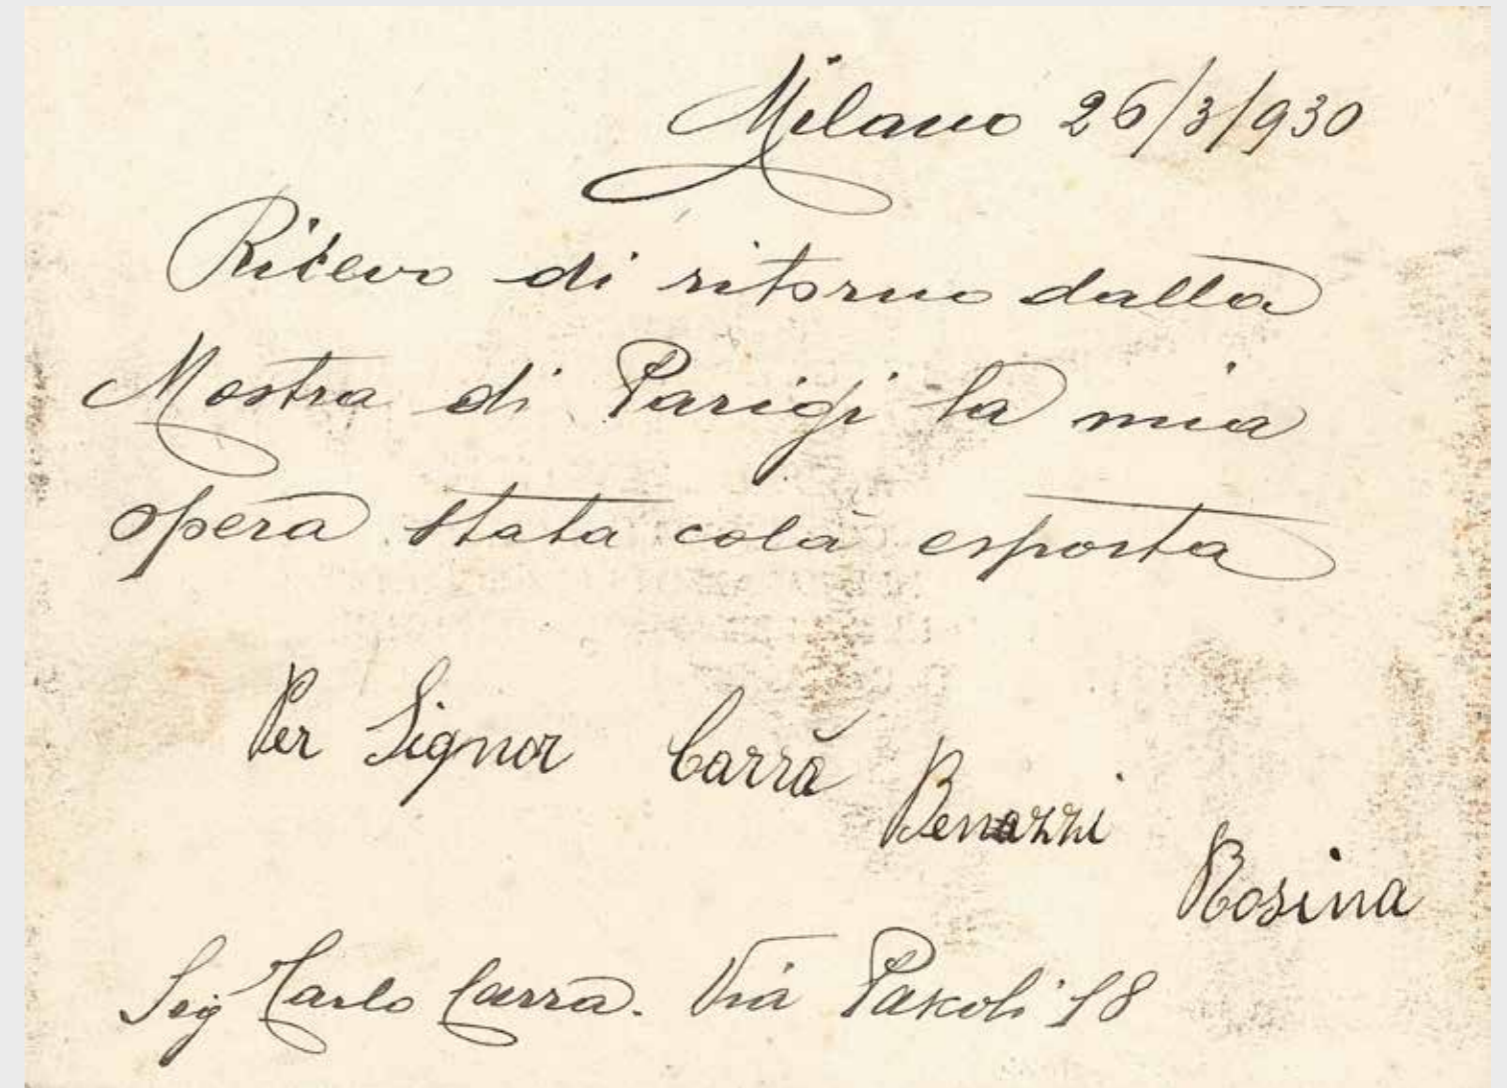 Milano 26/3/930
Ricevo di ritorno dalla
Mostra di Parigi la mia
opera stata colà esposta
Per Signor Carrà Benazzi
Rosina
Sig Carlo Carrà. Via Pascoli 18